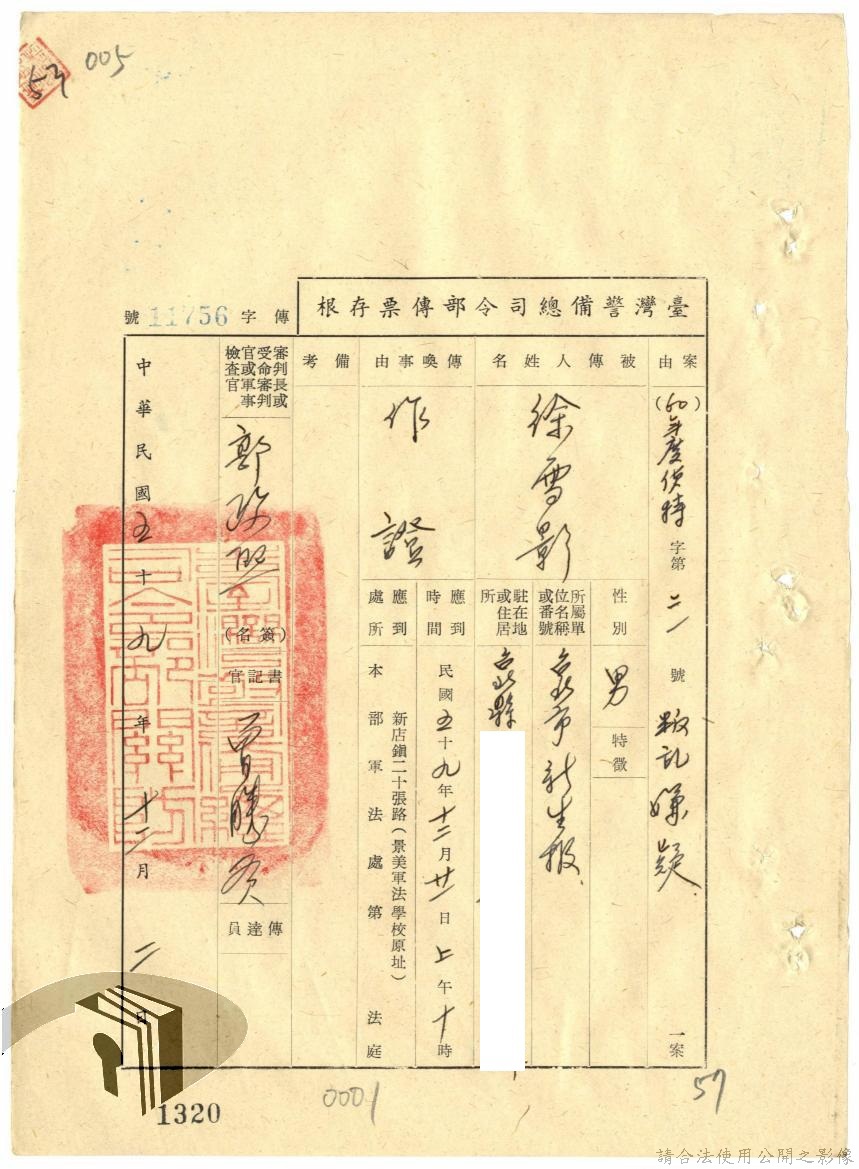 005
57
臺灣警備總司令部傳票存根
傳字 11756 號
案由
(60)年度偵特字第二一號叛乱嫌疑一案
被傳人姓名
徐雪影
性別
男
特徵
所屬單位名稱或番號
台北市新生报
駐在地或住居所
台北縣
傳喚事由
作證
應到時間
民國五十九年十二月廿一日上午十時
應到處所
新店鎮二十張路(景美軍法學校原址)
本部軍法處第 法庭
備考
審判長或受命審判官或軍事檢查官
郭政熙
(簽名)
書記官
曾勝有
傳達員
中華民國五十九年十二月二日
0001
57
1320
請合法使用公開之影像